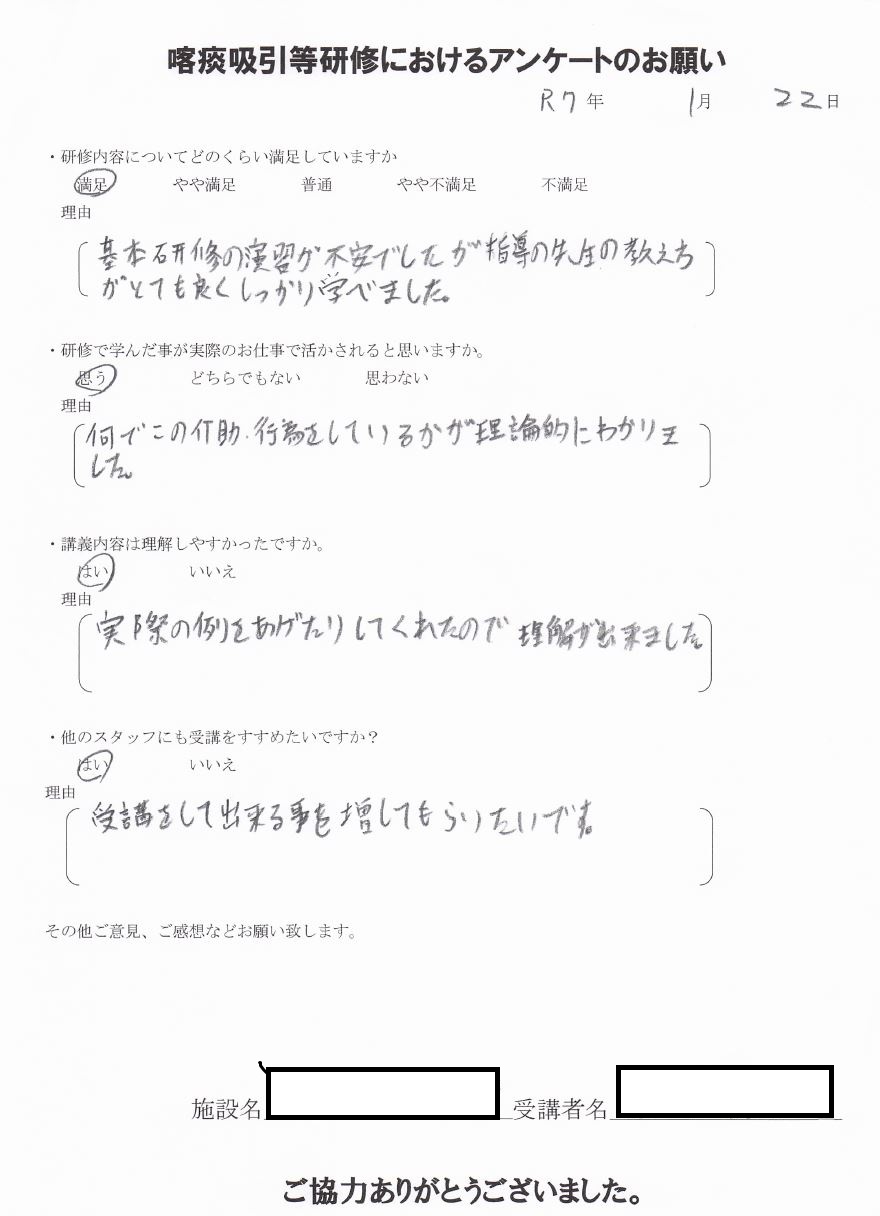 喀痰吸引等研修におけるアンケートのお願い
R7年 1月 22日
・研修内容についてどのくらい満足していますか
満足 やや満足 普通 やや不満足 不満足
理由
基本研修の演習が不安でしたが指導の先生の教え方
がとても良くしっかり学べました。
・研修で学んだ事が実際のお仕事で活かされると思いますか。
思う どちらでもない 思わない
理由
何でこの介助・行為をしているかが理論的にわかりま
した。
・講義内容は理解しやすかったですか。
はい いいえ
理由
実際の例をあげたりしてくれたので 理解が出来ました。
・他のスタッフにも受講をすすめたいですか?
はい いいえ
理由
受講をして出来る事を増してもらいたいです。
その他ご意見、ご感想などお願い致します。
施設名 受講者名
ご協力ありがとうございました。